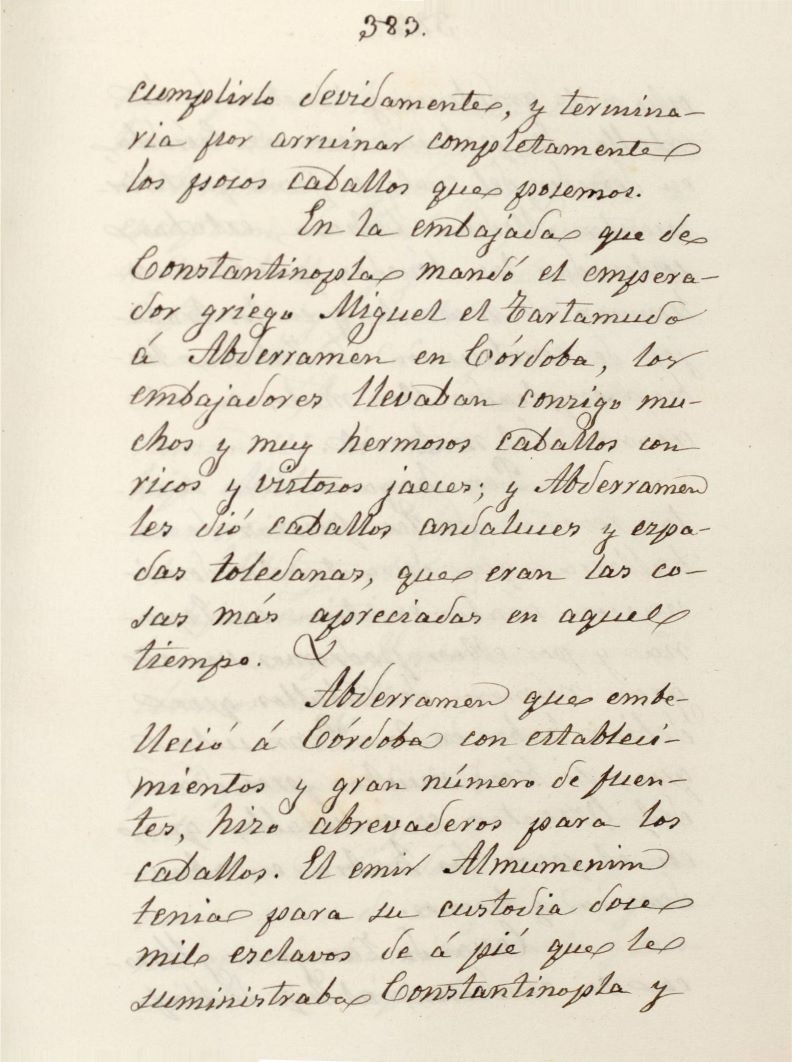 383.
cumplirlo devidamente, y termina-
ria por arruinar completamente
los pocos caballos que poseemos.
En la embajada que de
Constantinopla mandó el empera-
dor griego Miguel el Tartamudo
á Abderramen en Córdoba, los
embajadores llevaban consigo mu-
chos y muy hermosos caballos con
ricos y vistosos jaeces; y Abderramen
les dió caballos andaluces y espa-
das toledanas, que eran las co-
sas más apreciadas en aquel
tiempo.
Abderramen que embe-
lleció á Córdoba con estableci-
mientos y gran número de fuen-
tes, hizo abrevaderos para los
caballos. El emir Almumenim
tenia para su custodia doce
mil esclavos de á pié que le
suministraba Constantinopla y